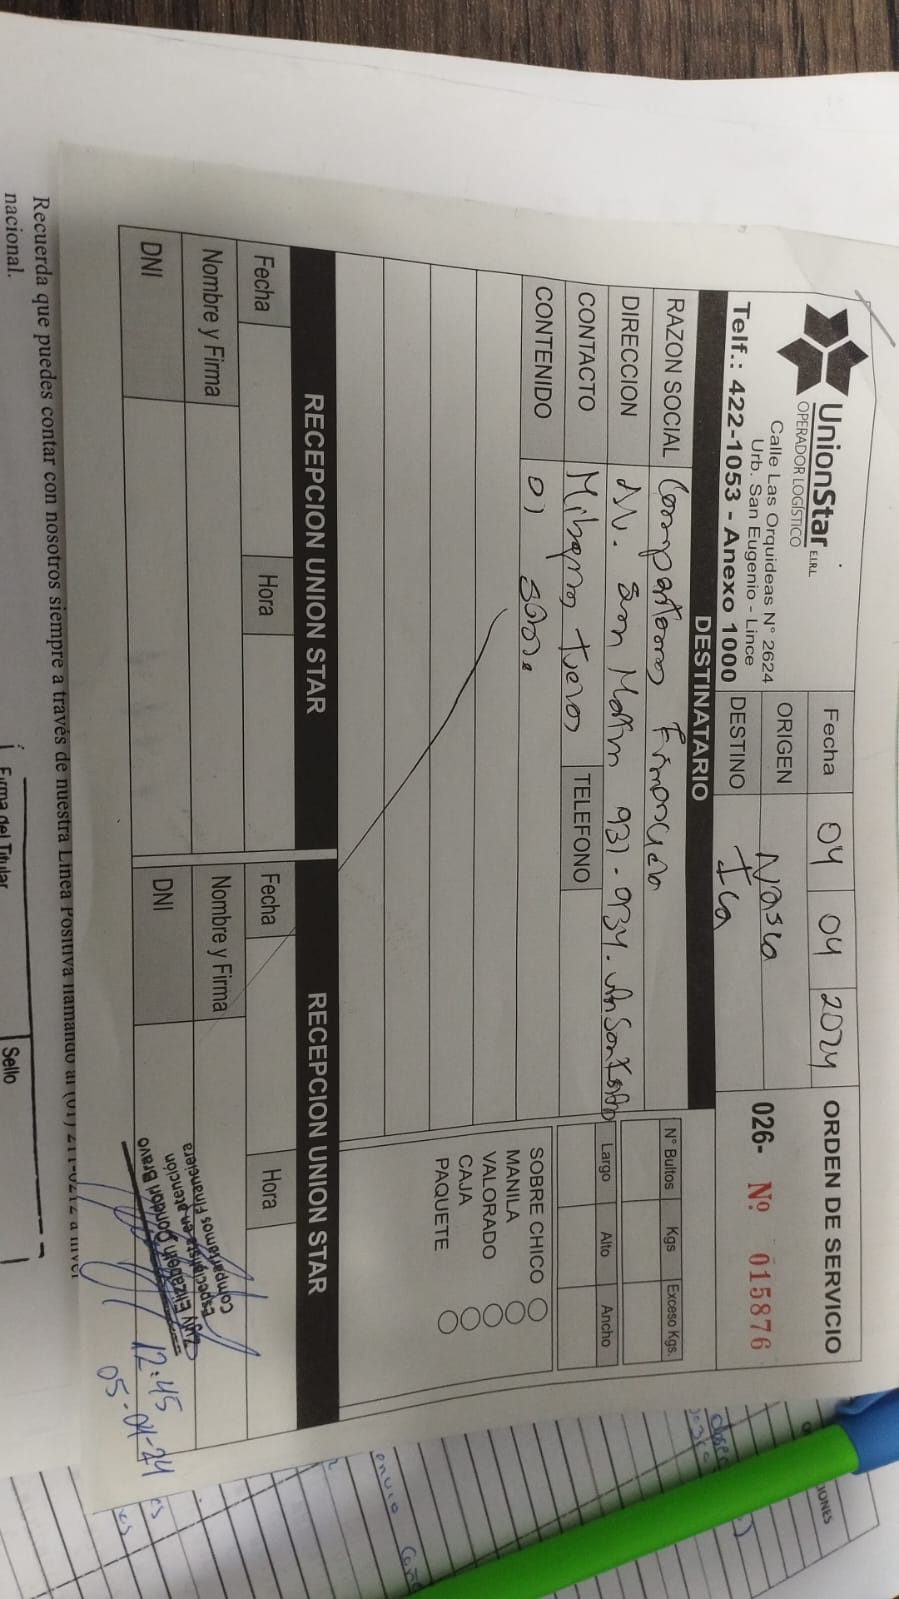 UnionStar E.I.R.L
OPERADOR LOGÍSTICO
Calle Las Orquideas N° 2624
Urb. San Eugenio - Lince
Telf.: 422-1053 - Anexo 1000
Fecha 04 04 2024
ORIGEN Nasca
DESTINO Ica
ORDEN DE SERVICIO
026- Nº 015876
DESTINATARIO
RAZON SOCIAL Compartamos Financiera
DIRECCION Av. San Martin 931-934.
CONTACTO Milagros
TELEFONO
CONTENIDO 01 Sobre
N° Bultos Kgs Exceso Kgs.
Largo Alto Ancho
SOBRE CHICO
MANILA
VALORADO
CAJA
PAQUETE
RECEPCION UNION STAR
Fecha Hora
Nombre y Firma
DNI
RECEPCION UNION STAR
Fecha Hora
Nombre y Firma
DNI
Zully Elizabeth Condori Bravo
Especialista en atención
Compartamos Financiera
12:45
05-04-24
Recuerda que puedes contar con nosotros siempre a través de nuestra Línea Positiva llamando al (01) 211-0212 a nivel
nacional.
Firma del Titular
Sello
envio